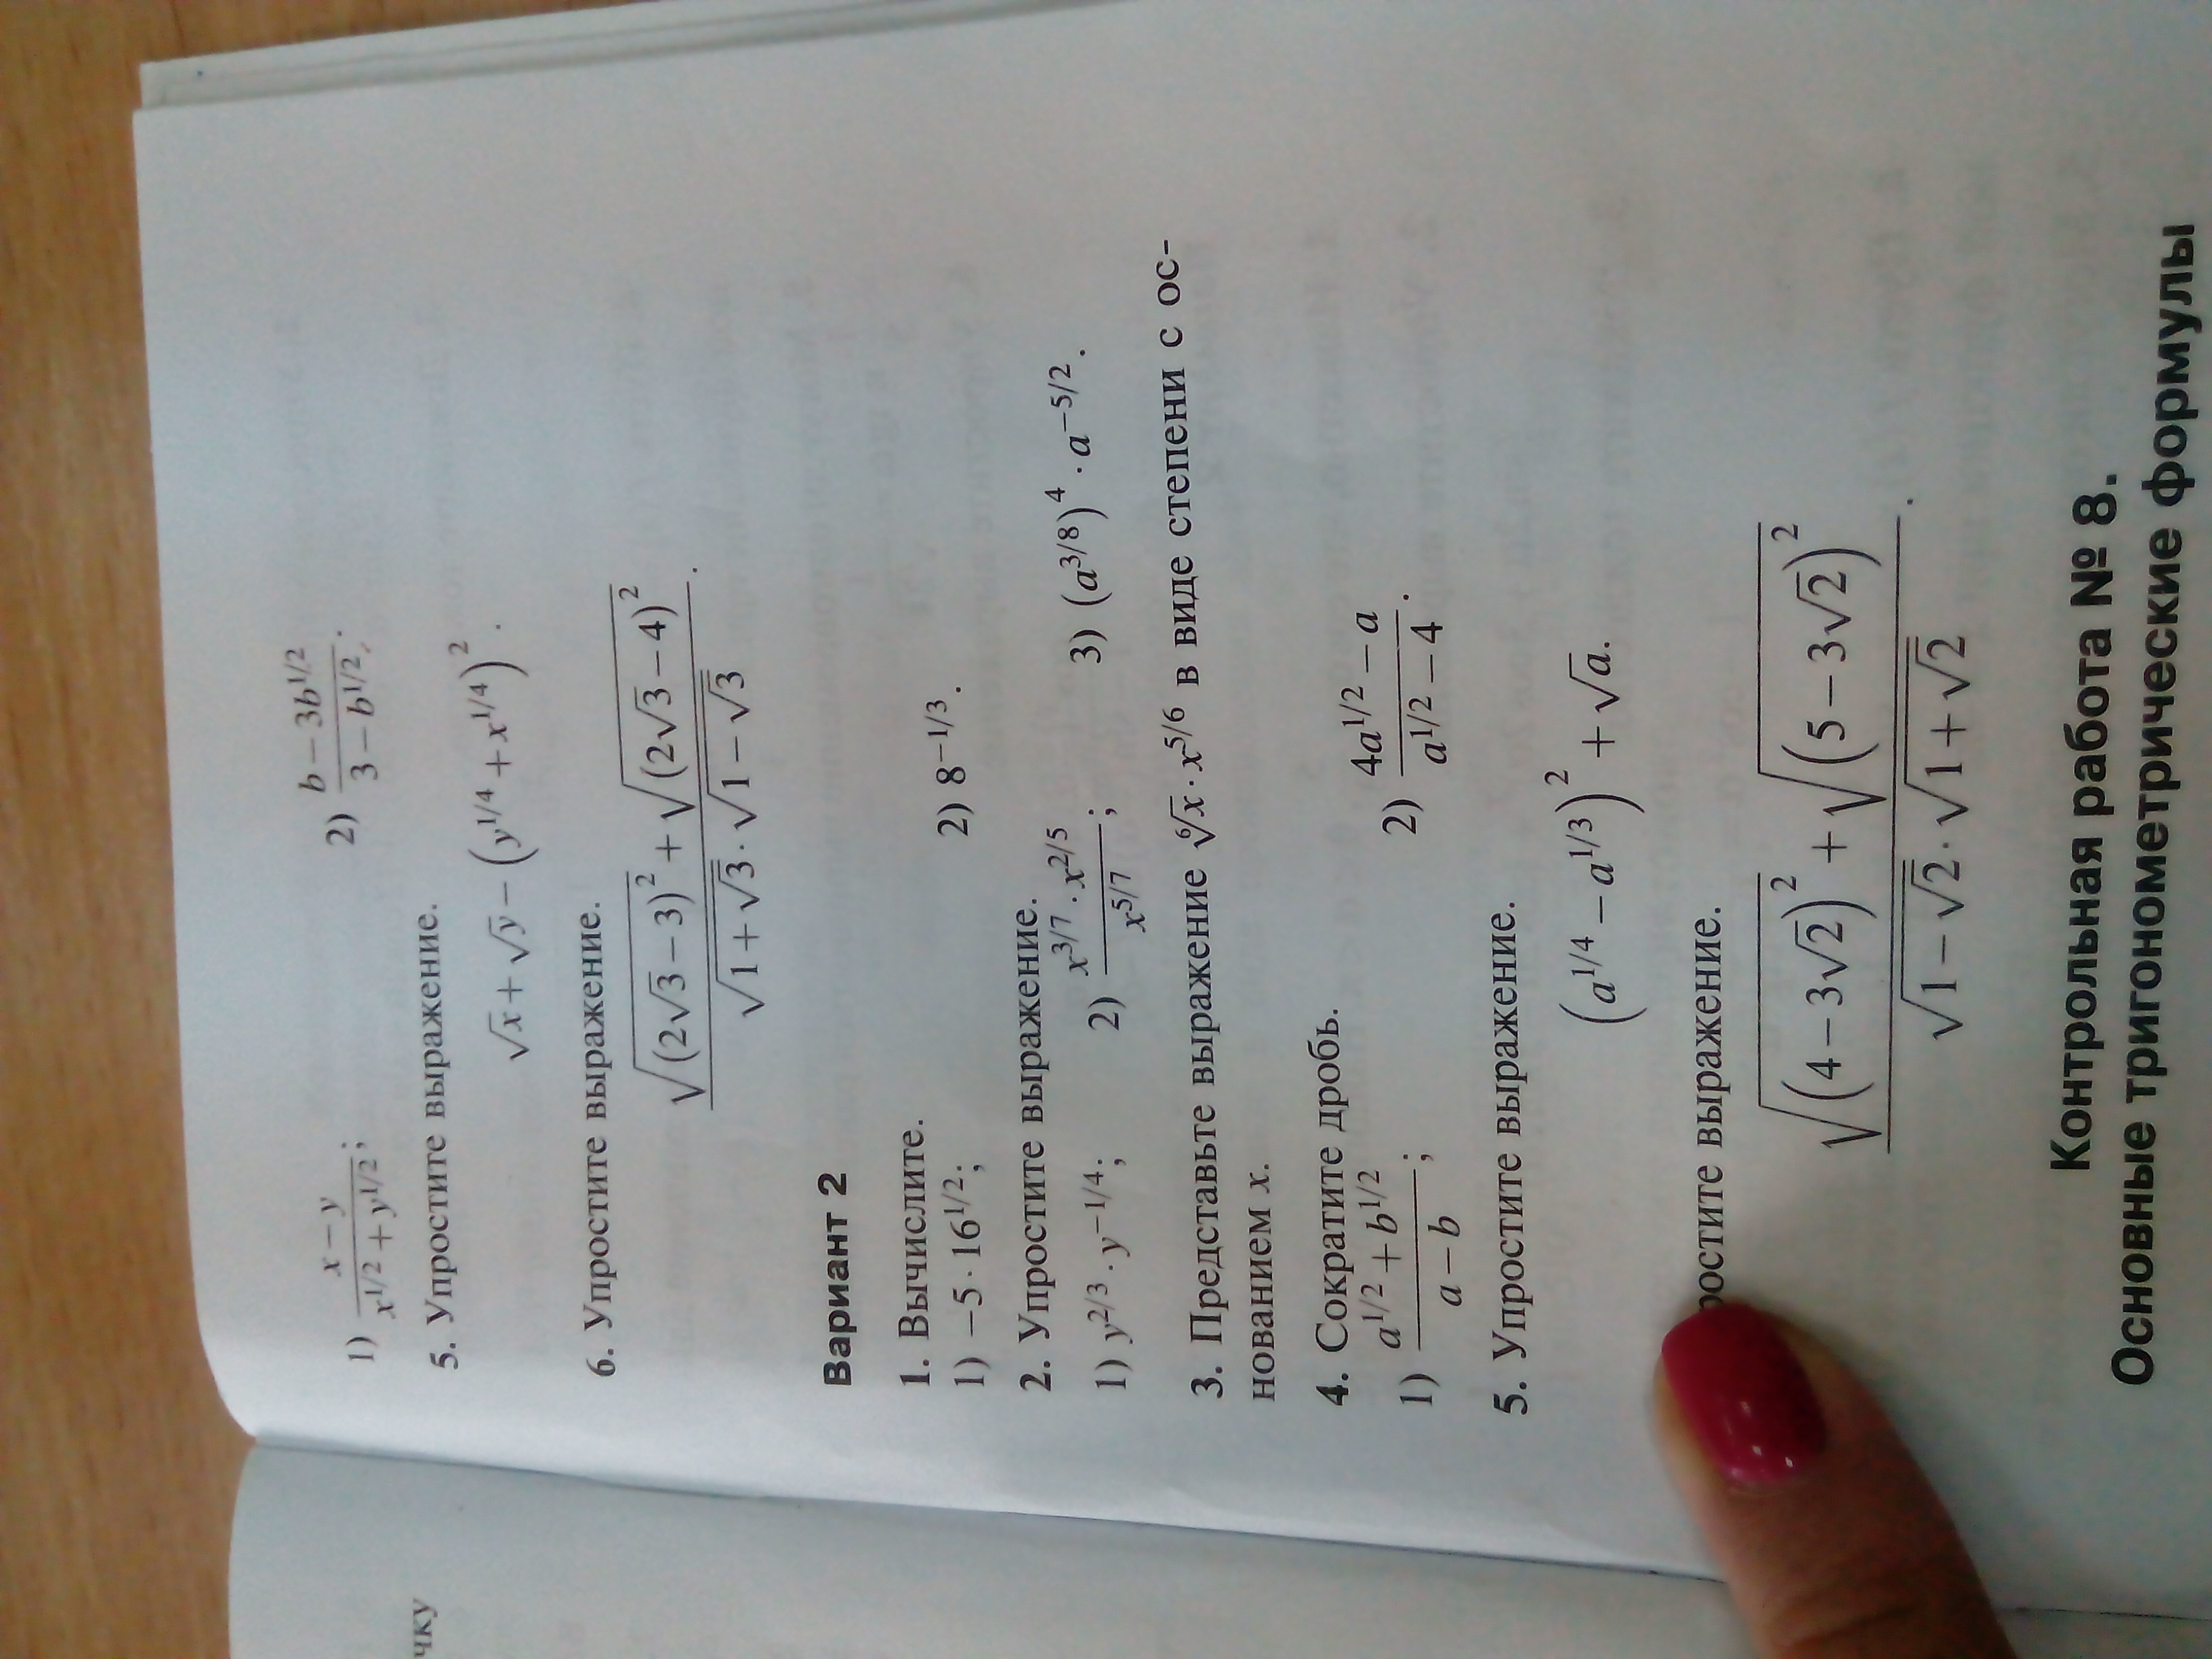 чку
1) (x − y)/(x^{1/2} + y^{1/2}); 2) (b − 3b^{1/2})/(3 − b^{1/2}).
5. Упростите выражение.
√x + √y − (y^{1/4} + x^{1/4})^2.
6. Упростите выражение.
(√((2√3 − 3)^2) + √((2√3 − 4)^2))/(√(1 + √3) · √(1 − √3)).
Вариант 2
1. Вычислите.
1) −5 · 16^{1/2}; 2) 8^{−1/3}.
2. Упростите выражение.
1) y^{2/3} · y^{−1/4}; 2) (x^{3/7} · x^{2/5})/x^{5/7}; 3) (a^{3/8})^4 · a^{−5/2}.
3. Представьте выражение ⁶√x · x^{5/6} в виде степени с ос-
нованием x.
4. Сократите дробь.
1) (a^{1/2} + b^{1/2})/(a − b); 2) (4a^{1/2} − a)/(a^{1/2} − 4).
5. Упростите выражение.
(a^{1/4} − a^{1/3})^2 + √a.
ростите выражение.
(√((4 − 3√2)^2) + √((5 − 3√2)^2))/(√(1 − √2) · √(1 + √2)).
Контрольная работа № 8.
Основные тригонометрические формулы